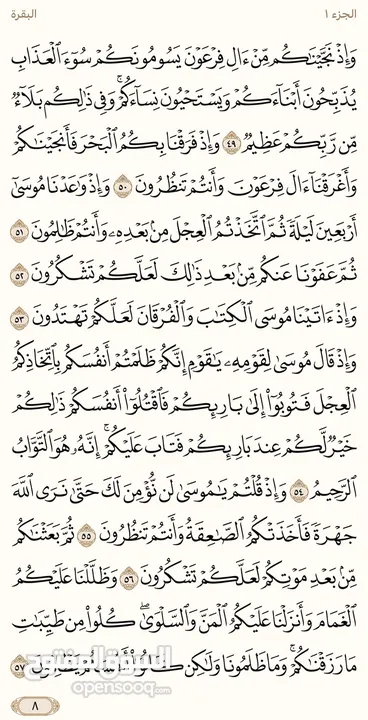 الجزء ١
البقرة
وَإِذْ نَجَّيْنَٰكُم مِّنْ ءَالِ فِرْعَوْنَ يَسُومُونَكُمْ سُوٓءَ ٱلْعَذَابِ
يُذَبِّحُونَ أَبْنَآءَكُمْ وَيَسْتَحْيُونَ نِسَآءَكُمْ ۚ وَفِى ذَٰلِكُم بَلَآءٌ
مِّن رَّبِّكُمْ عَظِيمٌ ٤٩ وَإِذْ فَرَقْنَا بِكُمُ ٱلْبَحْرَ فَأَنجَيْنَٰكُمْ
وَأَغْرَقْنَآ ءَالَ فِرْعَوْنَ وَأَنتُمْ تَنظُرُونَ ٥٠ وَإِذْ وَٰعَدْنَا مُوسَىٰٓ
أَرْبَعِينَ لَيْلَةً ثُمَّ ٱتَّخَذْتُمُ ٱلْعِجْلَ مِنۢ بَعْدِهِۦ وَأَنتُمْ ظَٰلِمُونَ ٥١
ثُمَّ عَفَوْنَا عَنكُم مِّنۢ بَعْدِ ذَٰلِكَ لَعَلَّكُمْ تَشْكُرُونَ ٥٢
وَإِذْ ءَاتَيْنَا مُوسَى ٱلْكِتَٰبَ وَٱلْفُرْقَانَ لَعَلَّكُمْ تَهْتَدُونَ ٥٣
وَإِذْ قَالَ مُوسَىٰ لِقَوْمِهِۦ يَٰقَوْمِ إِنَّكُمْ ظَلَمْتُمْ أَنفُسَكُم بِٱتِّخَاذِكُمُ
ٱلْعِجْلَ فَتُوبُوٓا۟ إِلَىٰ بَارِئِكُمْ فَٱقْتُلُوٓا۟ أَنفُسَكُمْ ذَٰلِكُمْ
خَيْرٌ لَّكُمْ عِندَ بَارِئِكُمْ فَتَابَ عَلَيْكُمْ ۚ إِنَّهُۥ هُوَ ٱلتَّوَّابُ
ٱلرَّحِيمُ ٥٤ وَإِذْ قُلْتُمْ يَٰمُوسَىٰ لَن نُّؤْمِنَ لَكَ حَتَّىٰ نَرَى ٱللَّهَ
جَهْرَةً فَأَخَذَتْكُمُ ٱلصَّٰعِقَةُ وَأَنتُمْ تَنظُرُونَ ٥٥ ثُمَّ بَعَثْنَٰكُم
مِّنۢ بَعْدِ مَوْتِكُمْ لَعَلَّكُمْ تَشْكُرُونَ ٥٦ وَظَلَّلْنَا عَلَيْكُمُ
ٱلْغَمَامَ وَأَنزَلْنَا عَلَيْكُمُ ٱلْمَنَّ وَٱلسَّلْوَىٰ ۖ كُلُوا۟ مِن طَيِّبَٰتِ
مَا رَزَقْنَٰكُمْ ۖ وَمَا ظَلَمُونَا وَلَٰكِن كَانُوٓا۟ أَنفُسَهُمْ يَظْلِمُونَ ٥٧
السوق المفتوح
opensooq.com
٨